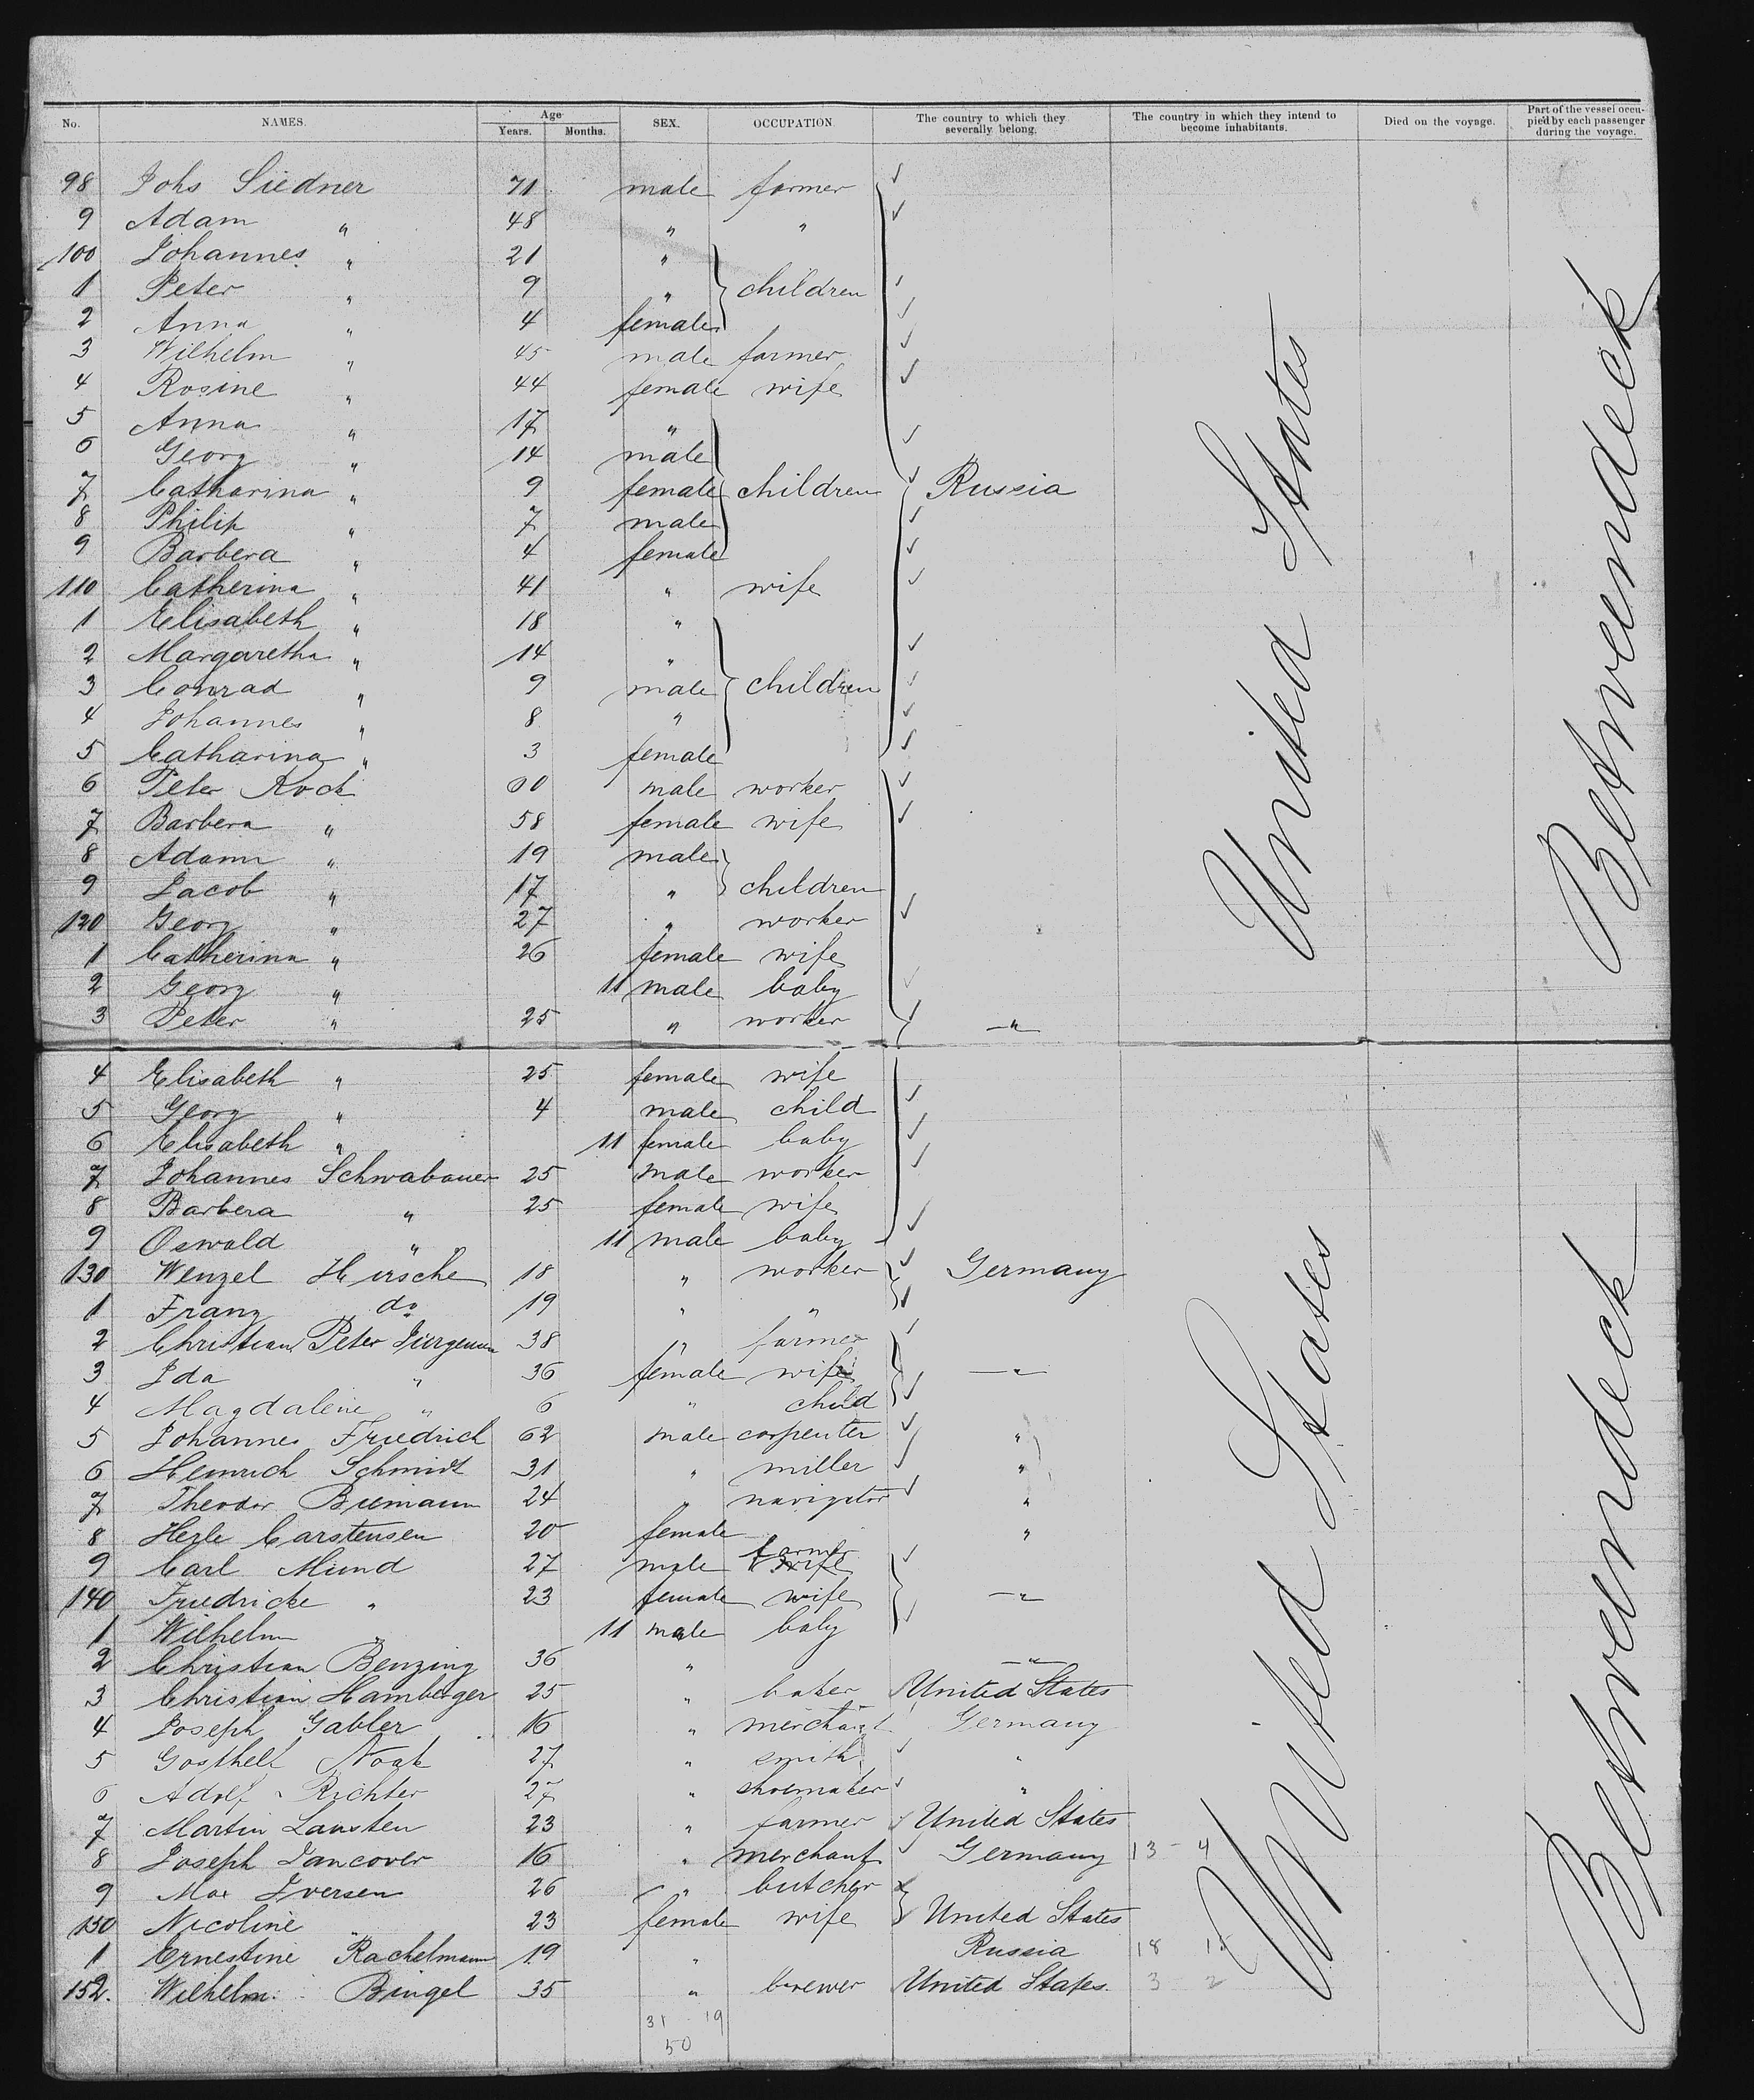 No. NAMES. Age Years. Months. SEX. OCCUPATION. The country to which they severally belong. The country in which they intend to become inhabitants. Died on the voyage. Part of the vessel occupied by each passenger during the voyage.
98 Johs Siedner 71 male farmer
9 Adam " 48 " "
100 Johannes " 21 "
1 Peter " 9 " children
2 Anna " 4 female
3 Wilhelm " 45 male farmer
4 Rosine " 44 female wife
5 Anna " 17 "
6 Georg " 14 male
7 Catharina " 9 female children Russia
8 Philip " 7 male
9 Barbera " 4 female
110 Catherina " 41 " wife
1 Elisabeth " 18 "
2 Margaretha " 14 "
3 Conrad " 9 male children
4 Johannes " 8 "
5 Catharina " 3 female
6 Peter Koch 60 male worker
7 Barbera " 58 female wife
8 Adam " 19 male
9 Jacob " 17 " children
120 Georg " 27 " worker
1 Catherina " 26 female wife
2 Georg " 11 male baby
3 Peter " 25 " worker "
4 Elisabeth " 25 female wife
5 Georg " 4 male child
6 Elisabeth " 11 female baby
7 Johannes Schwabauer 25 male worker
8 Barbera " 25 female wife
9 Oswald " 11 male baby
130 Wenzel Hirsche 18 " worker Germany
1 Franz do 19 " "
2 Christian Peter Jürgensen 38 " farmer
3 Ida " 36 female wife "
4 Magdalene " 6 " child
5 Johannes Friedrich 62 male carpenter "
6 Heinrich Schmidt 31 " miller "
7 Theodor Biemann 24 " navigator "
8 Herle Carstensen 20 female "
9 Carl Mund 27 male farmer
140 Friedricke " 23 female wife "
1 Wilhelm " 11 male baby
2 Christian Benzing 36 " "
3 Christian Hamberger 25 " baker United States
4 Joseph Gabler 16 " merchant Germany
5 Gotthelf Noak 27 " smith "
6 Adolf Richter 27 " shoemaker "
7 Martin Lausten 23 " farmer United States
8 Joseph Dancover 16 " merchant Germany 13 - 4
9 Max Iversen 26 " butcher
150 Nicoline " 23 female wife United States
1 Ernestine Rachelmann 19 " Russia 18 15
152. Wilhelm Bingel 35 " brewer United States. 3 2
31 19
50
United States
Betweendeck
United States
Betweendeck